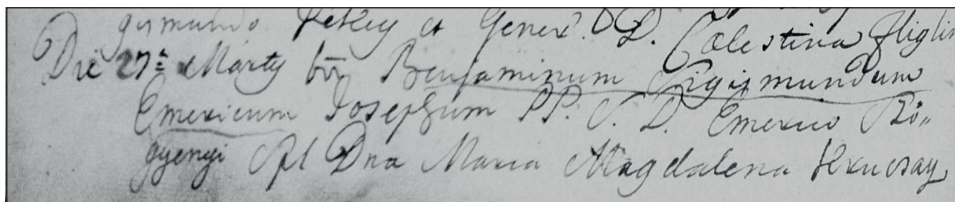 gismundo Petkey et Gener. D. Cælestina
Die 27ª Marty btr Benjaminum Sigismundum
Emericum Josephum PP. S. D. Emerico Bö„
gyenyi Spl Dna Maria Magdalena Hrusay